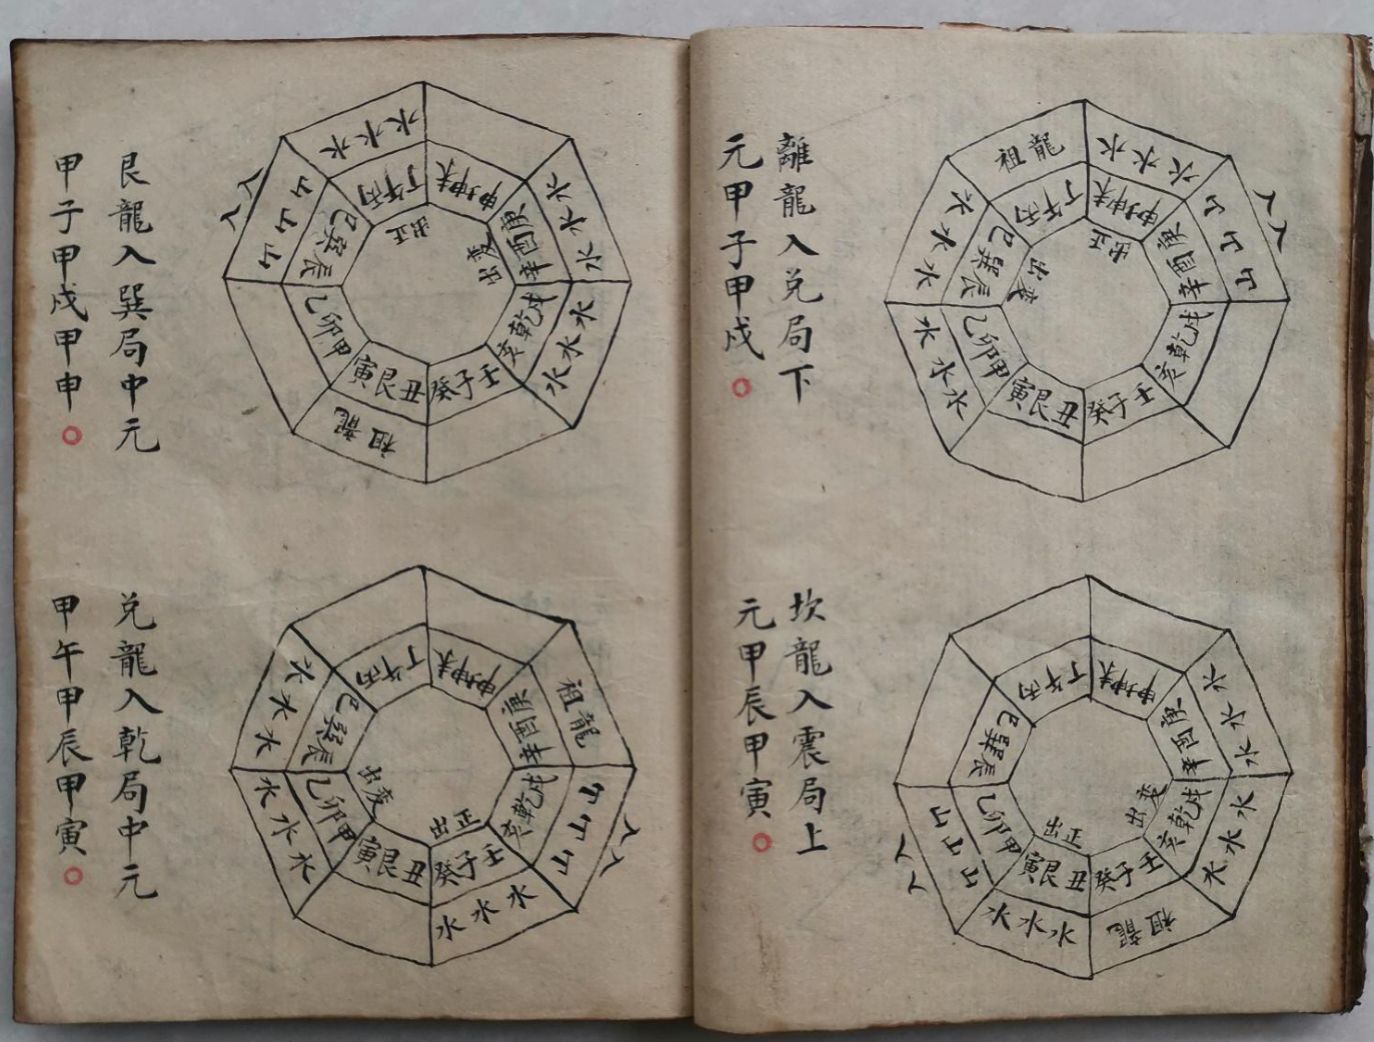 離龍入兑局下
元甲子甲戌
祖龍
水水水
山山山
入入
水水水
水水水
丙午丁
未坤申
庚酉辛
戌乾亥
壬子癸
丑艮寅
甲卯乙
辰巽巳
出正
出変
坎龍入震局上
元甲辰甲寅
水水水
水水水
祖龍
水水水
山山山
入入
丙午丁
未坤申
庚酉辛
戌乾亥
壬子癸
丑艮寅
甲卯乙
辰巽巳
出正
出変
艮龍入巽局中元
甲子甲戌甲申
水水水
水水水
水水水
祖龍
山山山
入入
丙午丁
未坤申
庚酉辛
戌乾亥
壬子癸
丑艮寅
甲卯乙
辰巽巳
出正
出変
兑龍入乾局中元
甲午甲辰甲寅
祖龍
山山山
入入
水水水
水水水
水水水
丙午丁
未坤申
庚酉辛
戌乾亥
壬子癸
丑艮寅
甲卯乙
辰巽巳
出正
出変